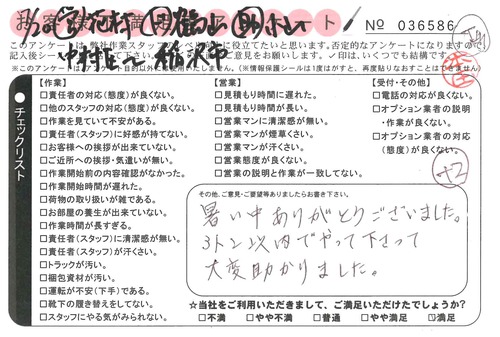 お客様満足アンケート
No 036586
このアンケートは、弊社作業スタッフのレベル向上に役立てたいと思います。否定的なアンケートになりますので、
※このアンケートは
(※情報保護シールは1度はがすと、再度貼りなおすことはできません)
チェックリスト
【作業】
□責任者の対応(態度)が良くない。
□他のスタッフの対応(態度)が良くない。
□作業を見ていて不安がある。
□責任者(スタッフ)に好感が持てない。
□お客様への挨拶が出来ていない。
□ご近所への挨拶・気遣いが無い。
□作業開始前の内容確認がなかった。
□作業開始時間が遅れた。
□荷物の取り扱いが雑である。
□お部屋の養生が出来ていない。
□作業時間が長すぎる。
□責任者(スタッフ)に清潔感が無い。
□責任者(スタッフ)が汗くさい。
□トラックが汚い。
□梱包資材が汚い。
□運転が不安(下手)である。
□靴下の履き替えをしてない。
□スタッフにやる気がみられない。
【営業】
□見積もり時間に遅れた。
□見積もり時間が長い。
□営業マンに清潔感が無い。
□営業マンが煙草くさい。
□営業マンが汗くさい。
□営業態度が良くない。
□営業の説明と作業が一致してない。
【受付・その他】
□電話の対応が良くない。
□オプション業者の説明
・作業が良くない。
□オプション業者の対応
(態度)が良くない。
+2
その他、ご意見・ご要望等ありましたらお書き下さい。
暑い中ありがとうございました。
3トン以内でやって下さって
大変助かりました。
☆当社をご利用いただきまして、ご満足いただけたでしょうか?
□不満 □やや不満 □普通 □やや満足 ☑満足